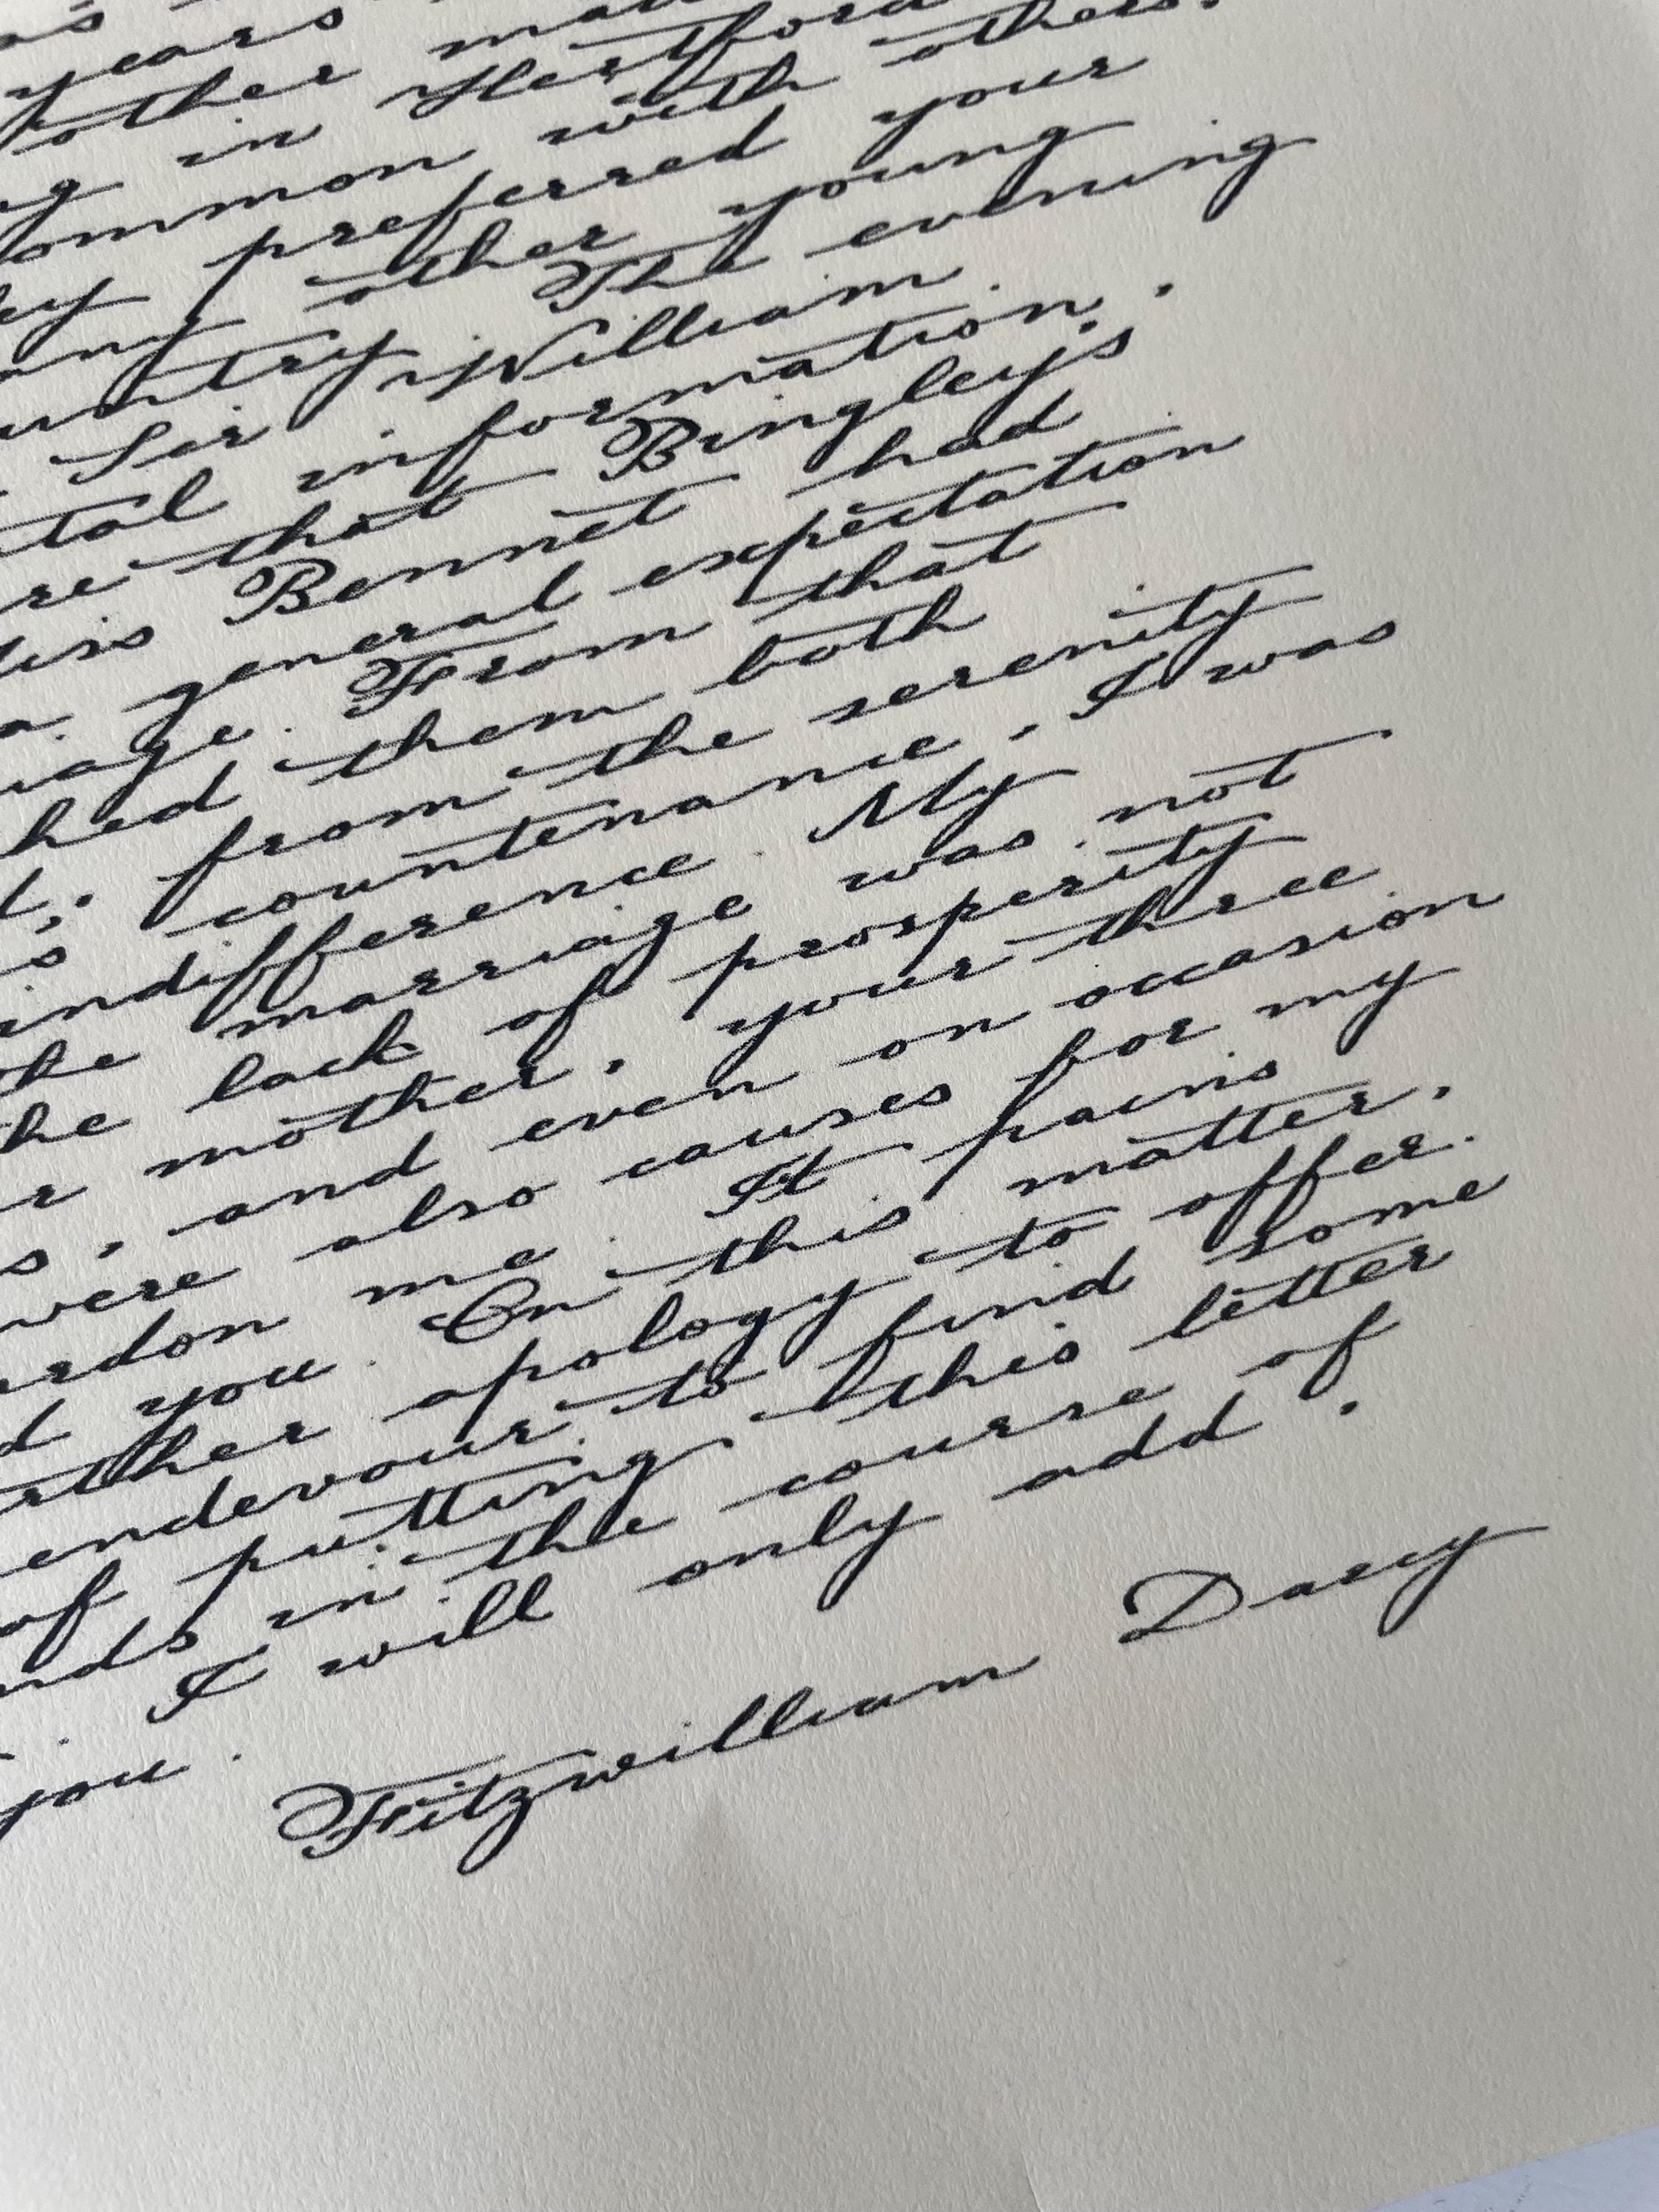 years
other
in Hertford
ommon with others.
preferred your
any other young
untry. The evening
Sir William
tal information,
re that Bingley's
iss Bennet had
a general expectation
iage. From that
hed them both
d; from the serenity
s countenance, I was
indifference. My
he marriage was not
he lack of prosperity
r mother, your three
s, and even on occasion
were also causes for my
rdon me. It pains
d you. On this matter,
rther apology to offer.
endevour to find some
of putting this letter
nds in the course of
I will only add,
you.
Fitzwilliam Darcy